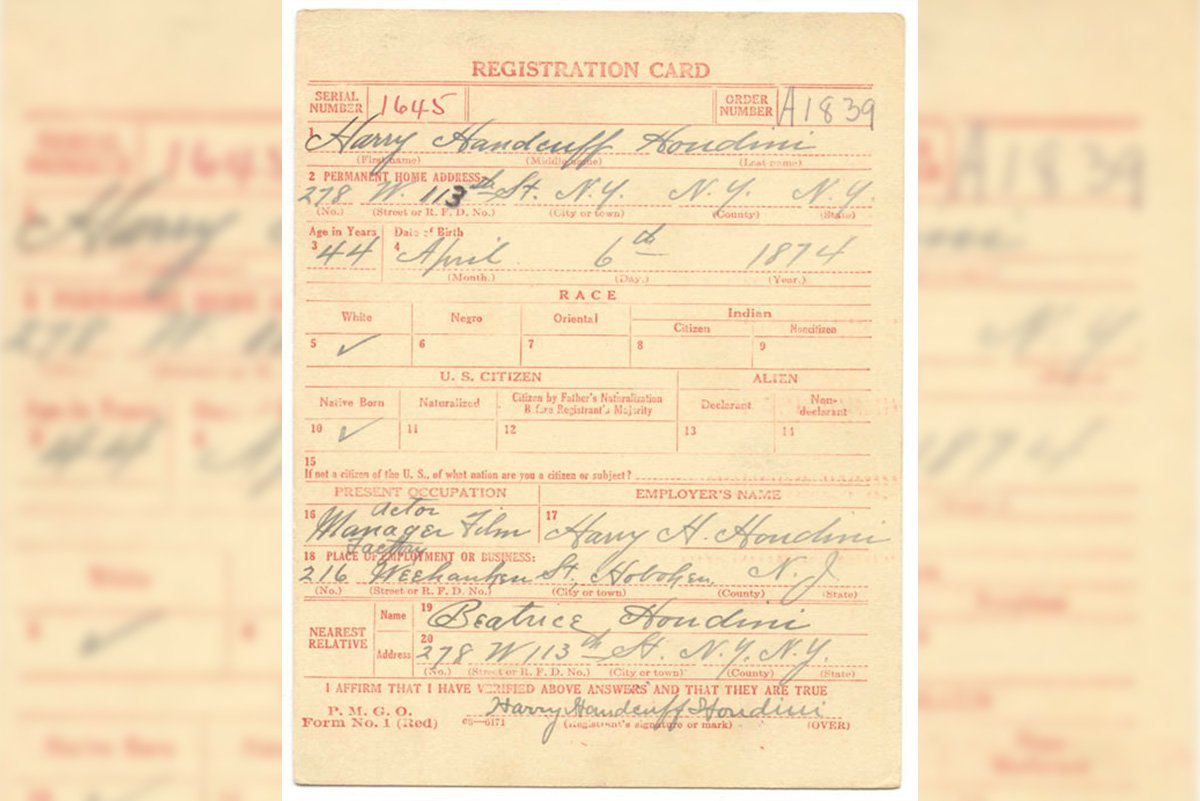 REGISTRATION CARD
SERIAL NUMBER 1645 ORDER NUMBER A1839
1 Harry Handcuff Houdini
(First name) (Middle name) (Last name)
2 PERMANENT HOME ADDRESS:
278 W. 113th St. N.Y. N.Y. N.Y.
(No.) (Street or R. F. D. No.) (City or town) (County) (State)
Age in Years Date of Birth
3 44 4 April 6th 1874
(Month.) (Day.) (Year.)
RACE
White Negro Oriental Indian
Citizen Noncitizen
5 ✓ 6 7 8 9
U. S. CITIZEN ALIEN
Native Born Naturalized Citizen by Father's Naturalization Before Registrant's Majority Declarant Non-declarant
10 ✓ 11 12 13 14
15
If not a citizen of the U. S., of what nation are you a citizen or subject?
PRESENT OCCUPATION EMPLOYER'S NAME
Actor
16 Manager Film 17 Harry H. Houdini
Factory
18 PLACE OF EMPLOYMENT OR BUSINESS:
216 Weehauken St, Hoboken, N. J
(No.) (Street or R. F. D. No.) (City or town) (County) (State)
NEAREST RELATIVE
Name 19 Beatrice Houdini
Address 20 278 W 113th St. N.Y. N.Y.
(No.) (Street or R. F. D. No.) (City or town) (County) (State)
I AFFIRM THAT I HAVE VERIFIED ABOVE ANSWERS AND THAT THEY ARE TRUE
P. M. G. O.
Form No. 1 (Red) Harry Handcuff Houdini
(Registrant's signature or mark) (OVER)